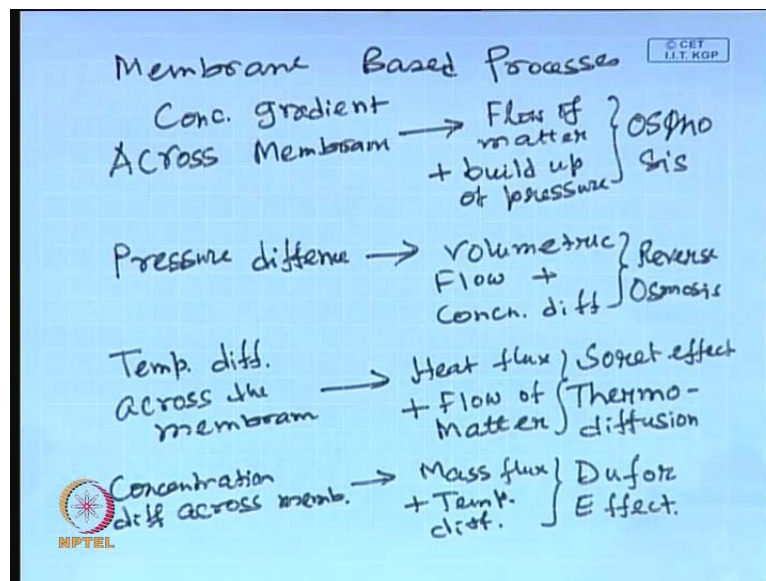 Membrane Based Processes
© CET
I.I.T. KGP
Conc. gradient
Across Membram
→ Flow of
matter
+ build up
of pressure
Osmo
sis
Pressure diffence → Volumetric
Flow +
Concn. diff
Reverse
Osmosis
Temp. diff.
across the
membram
→ Heat flux
+ Flow of
Matter
Soret effect
Thermo-
diffusion
Concentration
diff across memb.
→ Mass flux
+ Temp.
diff.
Dufor
Effect.
NPTEL